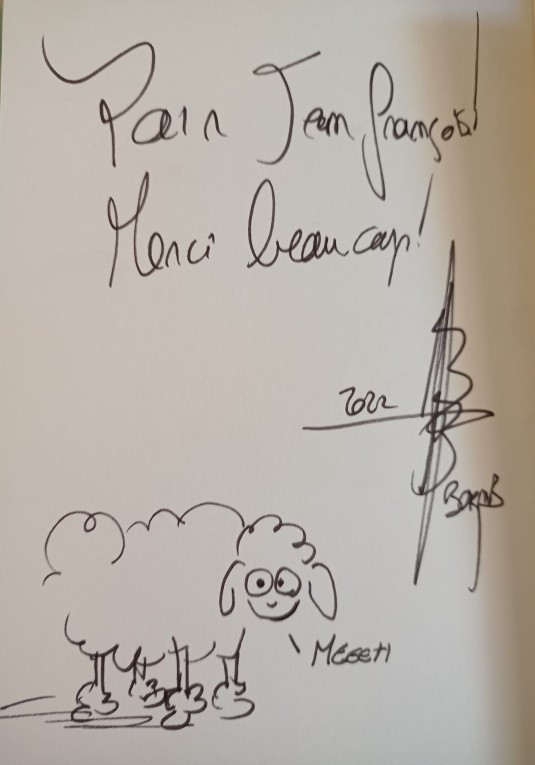 Pour Jean François!
Merci beaucoup!
2022
MEEEH